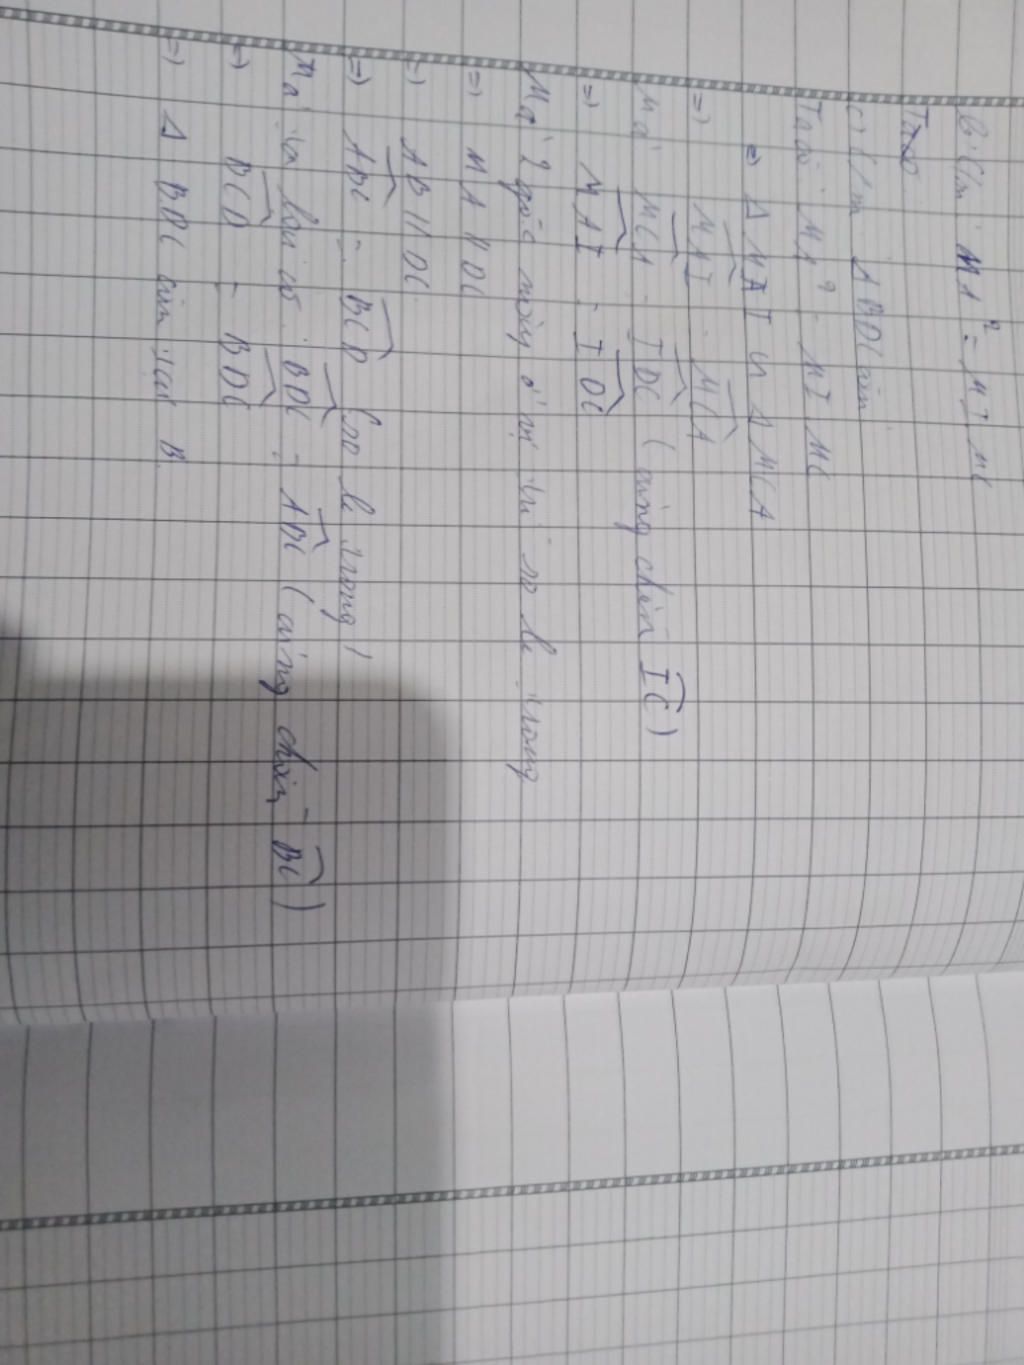 b. C/m: MA² = MI.MC
Ta có
c) C/m: Δ BDC cân
Ta có: MA² = MI MC
=> Δ MAI ∽ Δ MCA
=> MAI = MCA
Mà MCA = IDC (cùng chắn IC)
=> MAI = IDC
Mà 2 góc này ở vị trí so le trong
=> MA // DC
=> AB // DC
=> ABC = BCD (so le trong)
Mà ta lại có: BDC = ABC (cùng chắn BC)
=> BCD = BDC
=> Δ BDC cân tại B